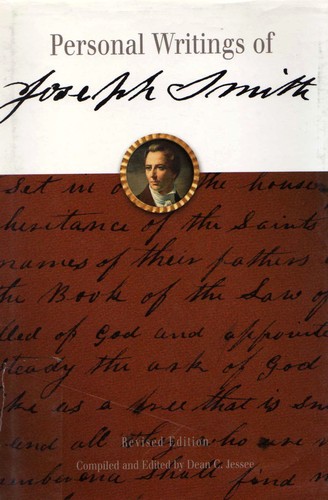 Personal Writings of
Joseph Smith
Set in the house
heritance of the Saints
names of their fathers
the Book of the Law of
lled of God and appointe
steady the ark of God
ke as a tree that is sm
and all they who are
shall find n
Revised Edition
Compiled and Edited by Dean C. Jessee